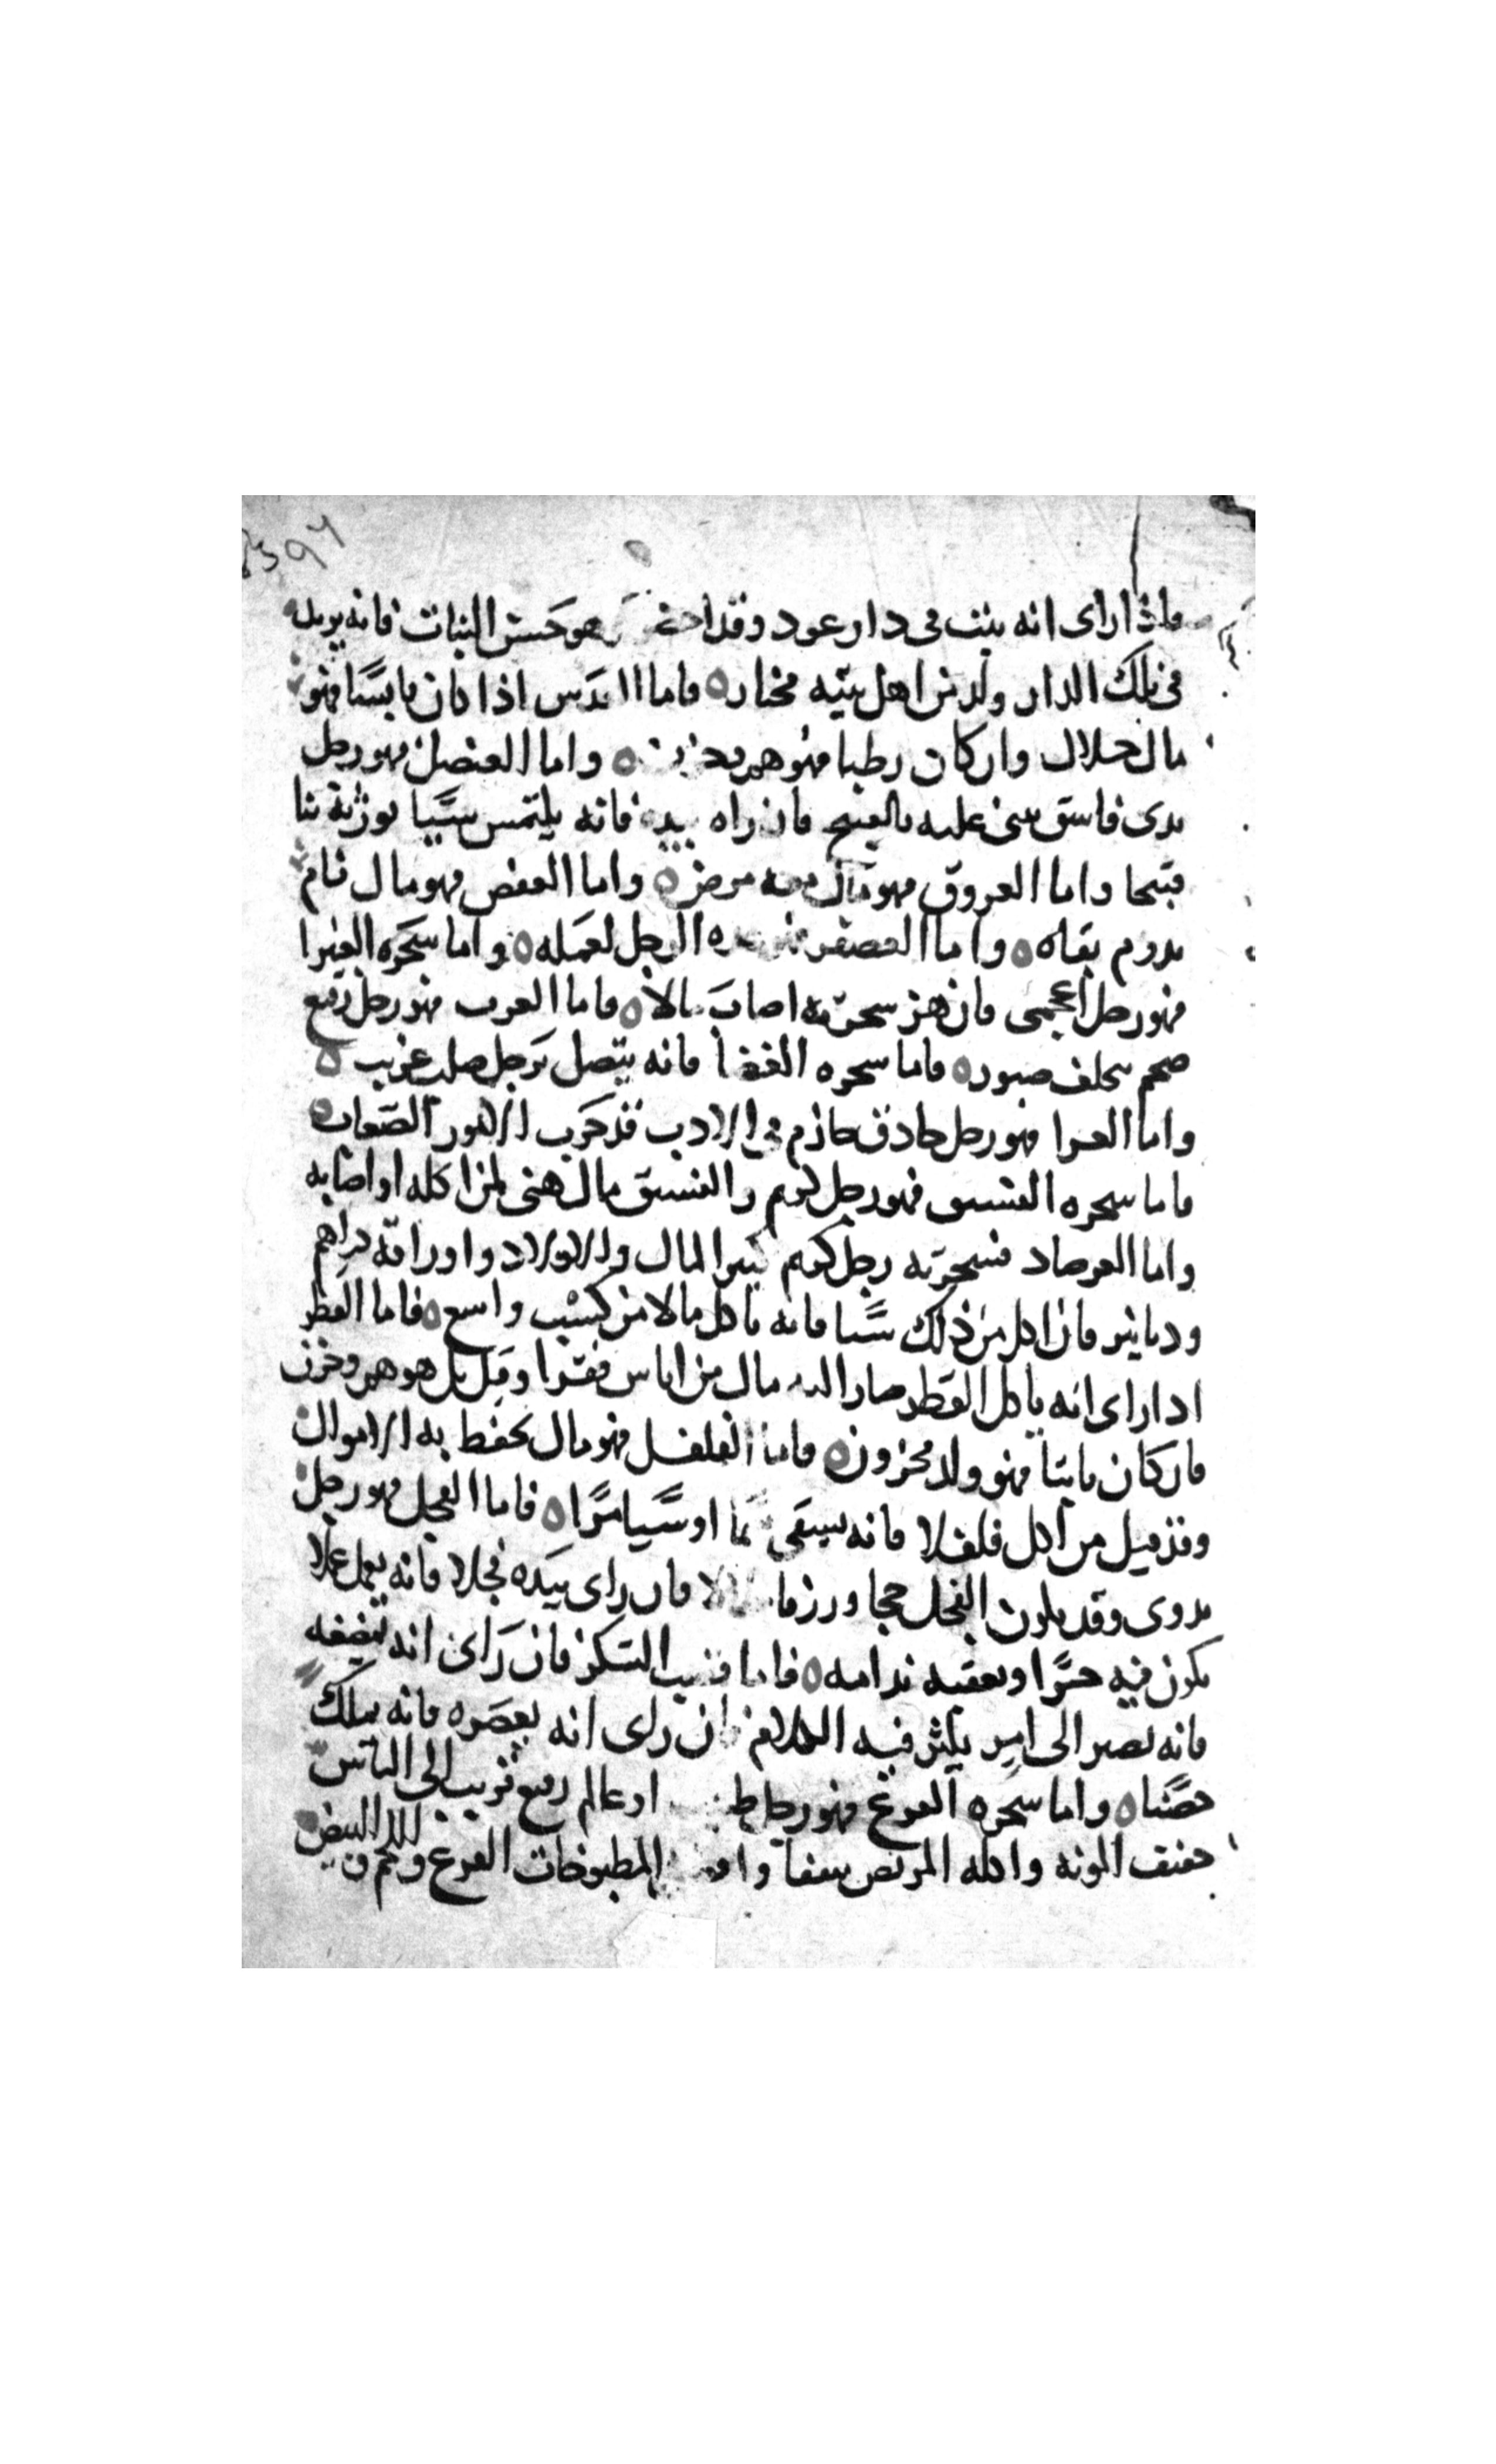 فاذا راى انه ينبت فى دار عود وقد اخضر وهو حسن النبات فانه يريد
فى تلك الدار ولد من اهل بيته مختار ٥ فاما العدس اذا كان يابسا فهو
مال حلال وان كان رطبا فهو هم وحزن ٥ واما العنصل فهو رجل
بدى فاسق يثنى عليه بالقبيح فان راه بيده فانه يلتمس شيا يورثه ثنا
قبيحا واما العروق فهو مال معه مرض ٥ واما العفص فهو مال نام
يدوم بقاه ٥ واما العصفر الرجل لعمله ٥ واما شجره الغبيرا
فهو رجل اعجمى فان هز شجرته اصاب مالا ٥ فاما العرب فهو رجل رفيع
ضخم صبور ٥ فاما شجره الغضا فانه يتصل برجل صلب غريب ٥
واما الفرا فهو رجل حاذق حازم فى الادب قد جرب الامور الصعاب ٥
فاما شجره الفستق فهو رجل كريم والفستق مال هنى لمن اكله او اصابه
واما الفرصاد فشجرته رجل كريم كثير المال والاولاد واوراقه دراهم
ودنانير فان اكل من ذلك شيا فانه ياكل مالا من كسب واسع ٥ فاما الفطر
اذا راى انه ياكل الفطر صار اليه مال من اناس فقرا وقيل بل هو هم وحزن
فان كان نابتا فهو ولد محزون ٥ فاما الفلفل فهو مال يحفظ به الاموال
وقد قيل من اكل فلفلا فانه يسقى سما او شيا مرا ٥ فاما الفجل فهو رجل
بدوى وقد يكون الفجل حجا ورزقا حلالا فان راى بيده فجلا فانه يعمل عملا
يكون فيه خيرا ويعقبه ندامه ٥ فاما قصب السكر فان راى انه يمضغه
فانه يصير الى امر يكثر فيه الكلام فان راى انه يعصره فانه يملك
خصبا ٥ واما شجره القرع فهو رجل طبيب او عالم رفيع قريب الى الناس
خفيف المونه واكله المريض شفا المطبوخات القرع ولحم